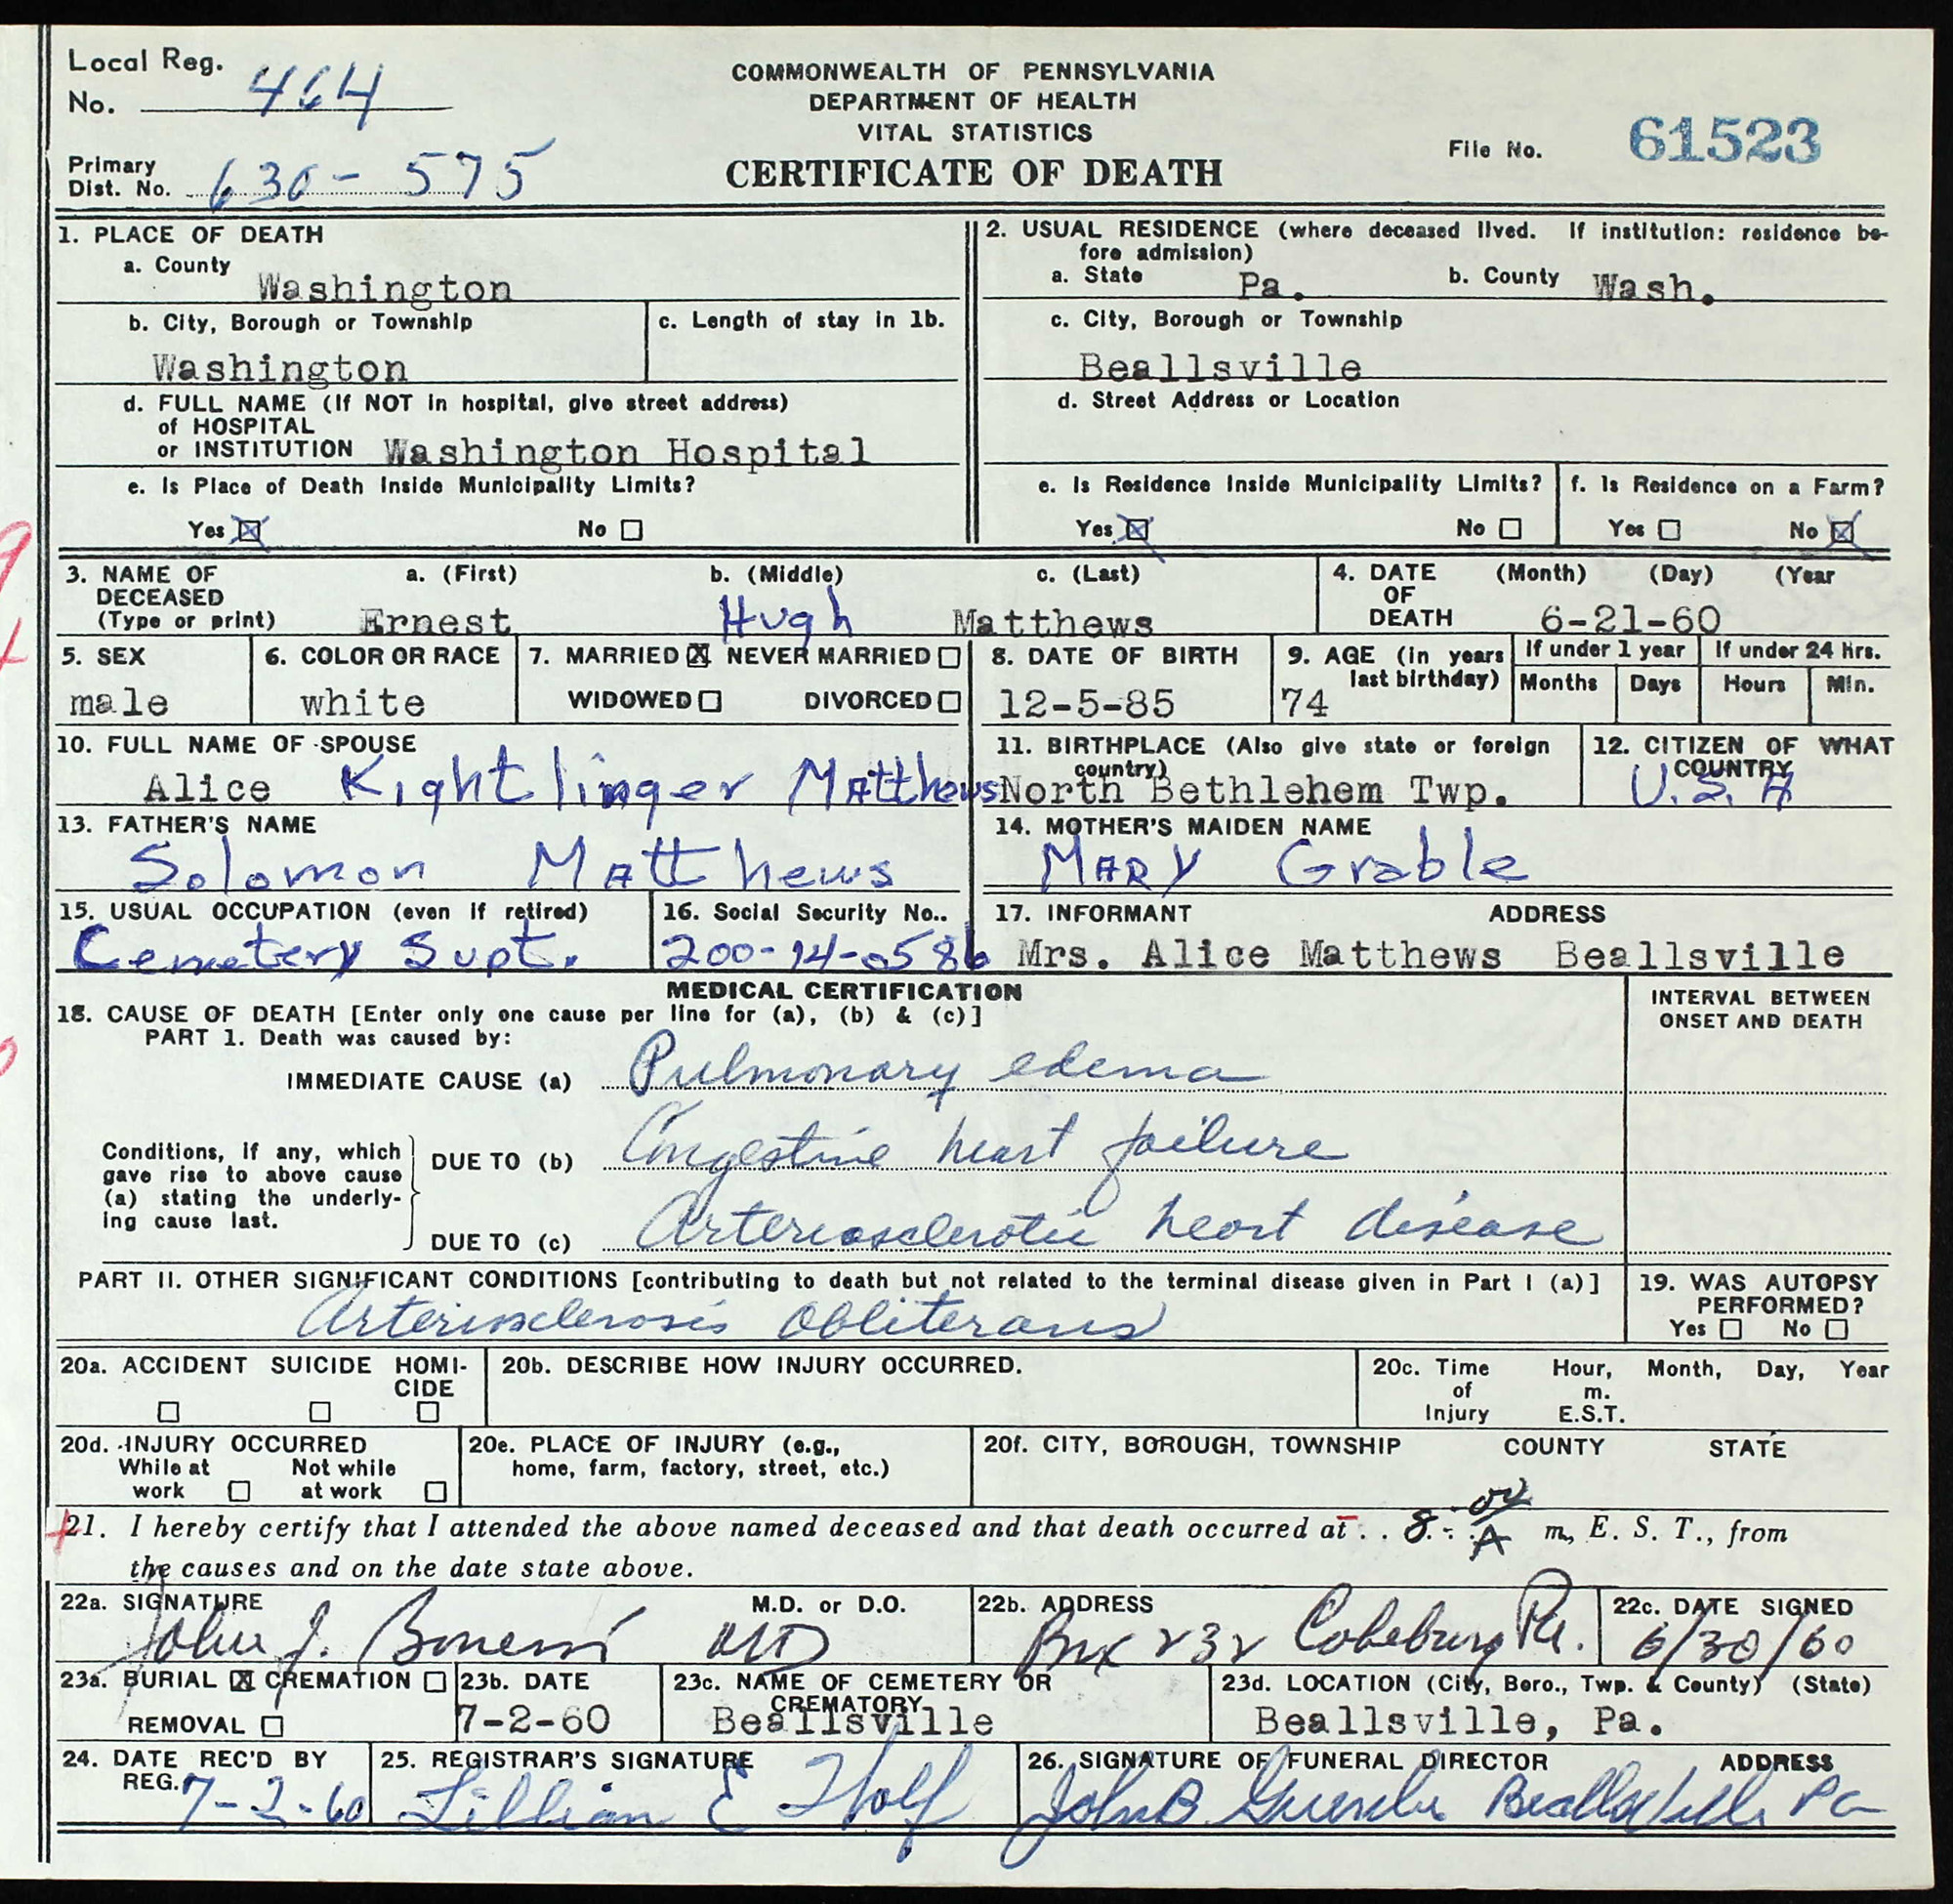 Local Reg.
No. 464
COMMONWEALTH OF PENNSYLVANIA
DEPARTMENT OF HEALTH
VITAL STATISTICS
CERTIFICATE OF DEATH
File No. 61523
Primary
Dist. No. 630-575
1. PLACE OF DEATH
a. County
Washington
b. City, Borough or Township
Washington
c. Length of stay in 1b.
d. FULL NAME (If NOT in hospital, give street address)
of HOSPITAL
or INSTITUTION Washington Hospital
e. Is Place of Death Inside Municipality Limits?
Yes ☒ No ☐
2. USUAL RESIDENCE (where deceased lived. If institution: residence be-
fore admission)
a. State Pa. b. County Wash.
c. City, Borough or Township
Beallsville
d. Street Address or Location
e. Is Residence Inside Municipality Limits?
Yes ☒ No ☐
f. Is Residence on a Farm?
Yes ☐ No ☒
3. NAME OF DECEASED
(Type or print)
a. (First) b. (Middle) c. (Last)
Ernest Hugh Matthews
4. DATE OF DEATH (Month) (Day) (Year
6-21-60
5. SEX
male
6. COLOR OR RACE
white
7. MARRIED ☒ NEVER MARRIED ☐
WIDOWED ☐ DIVORCED ☐
8. DATE OF BIRTH
12-5-85
9. AGE (in years
last birthday)
74
If under 1 year
Months Days
If under 24 Hrs.
Hours Min.
10. FULL NAME OF SPOUSE
Alice Kightlinger Matthews
11. BIRTHPLACE (Also give state or foreign
country)
North Bethlehem Twp.
12. CITIZEN OF WHAT
COUNTRY
U.S.A
13. FATHER'S NAME
Solomon Matthews
14. MOTHER'S MAIDEN NAME
MARY Grable
15. USUAL OCCUPATION (even if retired)
Cemetery Supt.
16. Social Security No..
200-14-0586
17. INFORMANT ADDRESS
Mrs. Alice Matthews Beallsville
MEDICAL CERTIFICATION
18. CAUSE OF DEATH [Enter only one cause per line for (a), (b) & (c)]
INTERVAL BETWEEN
ONSET AND DEATH
PART 1. Death was caused by:
IMMEDIATE CAUSE (a) Pulmonary edema
Conditions, if any, which
gave rise to above cause
(a) stating the underly-
ing cause last.
DUE TO (b) Congestive heart failure
DUE TO (c) Arteriosclerotic heart disease
PART II. OTHER SIGNIFICANT CONDITIONS [contributing to death but not related to the terminal disease given in Part I (a)]
Arteriosclerosis obliterans
19. WAS AUTOPSY
PERFORMED?
Yes ☐ No ☐
20a. ACCIDENT SUICIDE HOMI-
CIDE
☐ ☐ ☐
20b. DESCRIBE HOW INJURY OCCURRED.
20c. Time Hour, Month, Day, Year
of m.
Injury E.S.T.
20d. INJURY OCCURRED
While at Not while
work ☐ at work ☐
20e. PLACE OF INJURY (e.g.,
home, farm, factory, street, etc.)
20f. CITY, BOROUGH, TOWNSHIP COUNTY STATE
21. I hereby certify that I attended the above named deceased and that death occurred at . . 8:00 A m, E. S. T., from
the causes and on the date state above.
22a. SIGNATURE M.D. or D.O.
John J. MD
22b. ADDRESS
Box 232 Pa.
22c. DATE SIGNED
6/30/60
23a. BURIAL ☒ CREMATION ☐
REMOVAL ☐
23b. DATE
7-2-60
23c. NAME OF CEMETERY OR
CREMATORY
Beallsville
23d. LOCATION (City, Boro., Twp. & County) (State)
Beallsville, Pa.
24. DATE REC'D BY
REG. 7-2-60
25. REGISTRAR'S SIGNATURE
Lillian E
26. SIGNATURE OF FUNERAL DIRECTOR ADDRESS
John B. Beallsville Pa